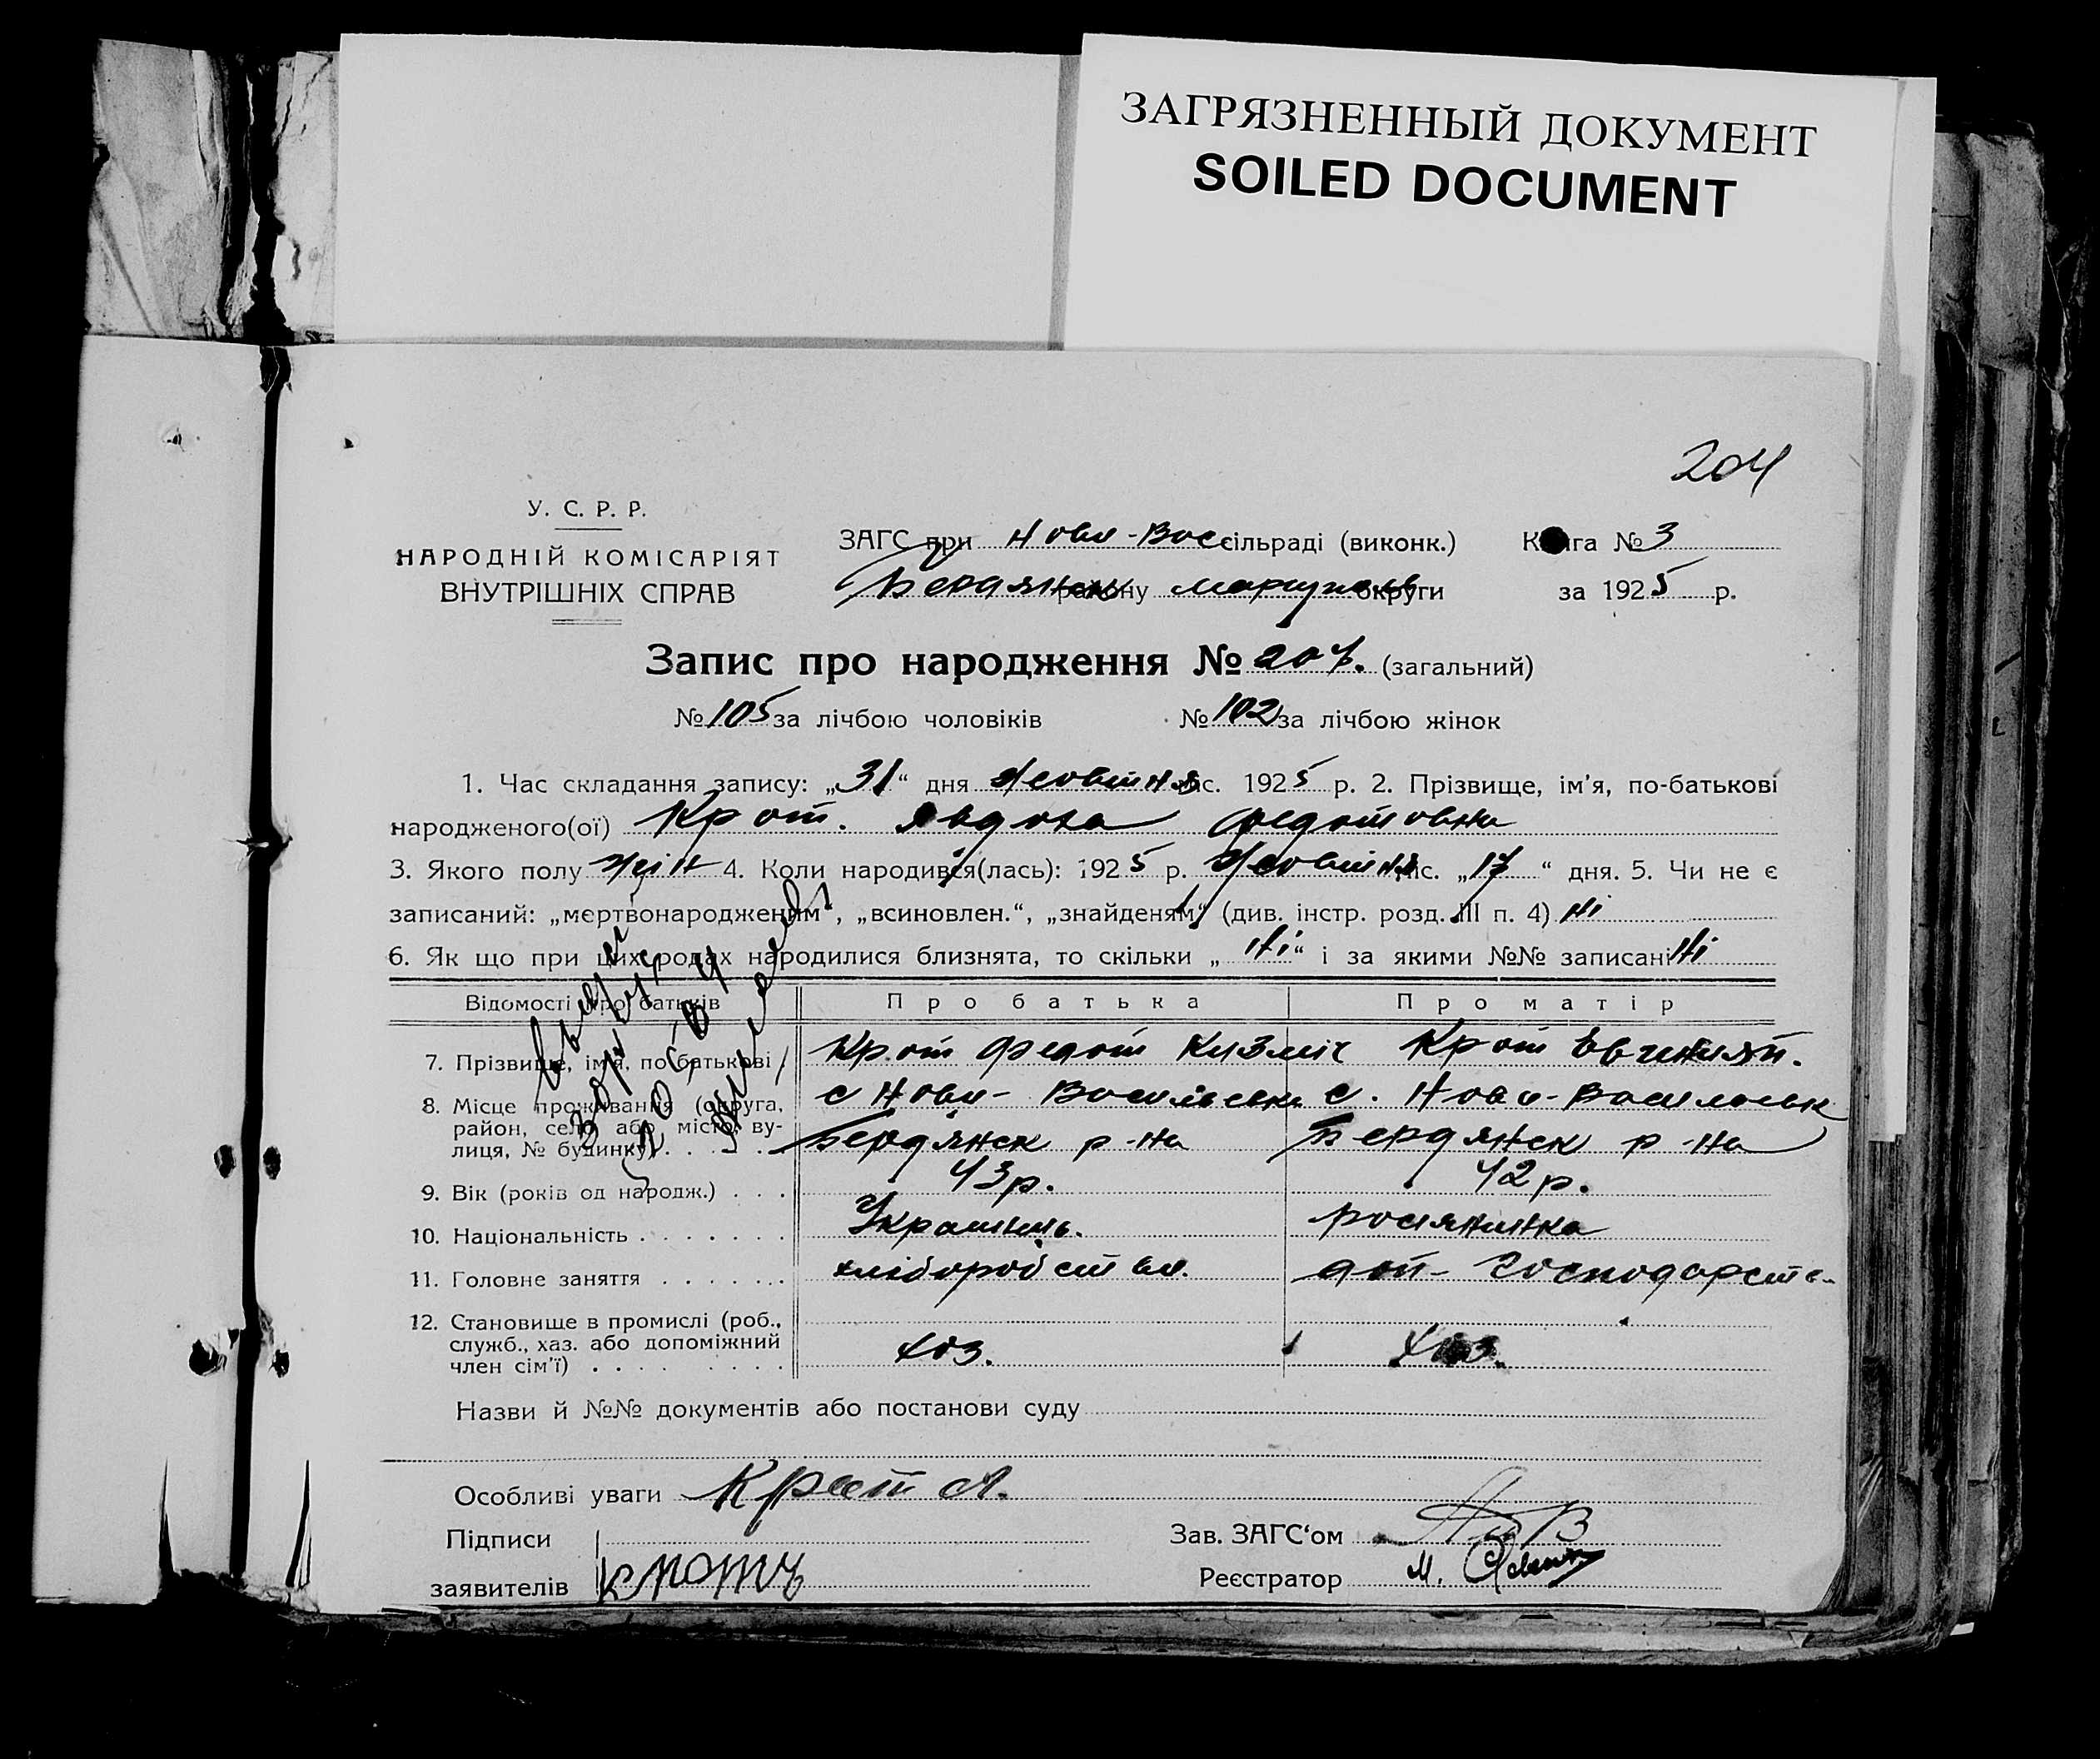 ЗАГРЯЗНЕННЫЙ ДОКУМЕНТ
SOILED DOCUMENT
204
У. С. Р. Р.
НАРОДНІЙ КОМІСАРІЯТ
ВНУТРІШНІХ СПРАВ
ЗАГС при Ново-Вас сільраді (виконк.) Книга № 3
Бердянськ району Маріуполь округи за 1925 р.
Запис про народження № 207. (загальний)
№ 105 за лічбою чоловіків № 102 за лічбою жінок
1. Час складання запису: „31“ дня Жовтня міс. 1925 р. 2. Прізвище, ім'я, по-батькові
народженого(ої) Крот. Явдоха Федотовна
3. Якого полу жін 4. Коли народився(лась): 1925 р. Жовтня міс. „17“ дня. 5. Чи не є
записаний: „мертвонародженим“, „всиновлен.“, „знайденям“ (див. інстр. розд. III п. 4) ні
6. Як що при цих родах народилися близнята, то скільки „ні“ і за якими №№ записані ні
Відомості про батьків Про батька Про матір
7. Прізвище, ім'я, по-батькові Крот Федот Кузміч Крот
8. Місце проживання (округа, район, село або місто, ву-
лиця, № будинку) с Ново-Васильевка с. Ново-Васильевк
Бердянск р-на Бердянск р-на
9. Вік (років од народж.) 43р. 42р.
10. Національність росіянинка
11. Головне заняття хлібороб ство. дом- господарств
12. Становище в промислі (роб.,
служб., хаз. або допоміжний
член сім'ї) хоз. хоз.
Назви й №№ документів або постанови суду
Особливі уваги
Підписи
заявителів
Зав. ЗАГС‘ом
Реєстратор М.